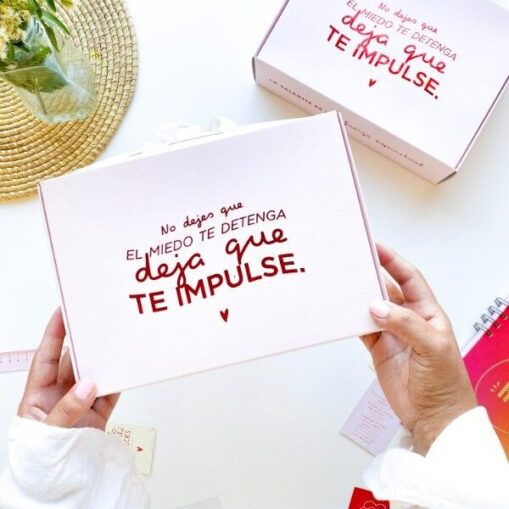 No dejes que
EL MIEDO TE DETENGA
deja que
TE IMPULSE.
No dejes que
EL MIEDO TE DETENGA
deja que
TE IMPULSE.